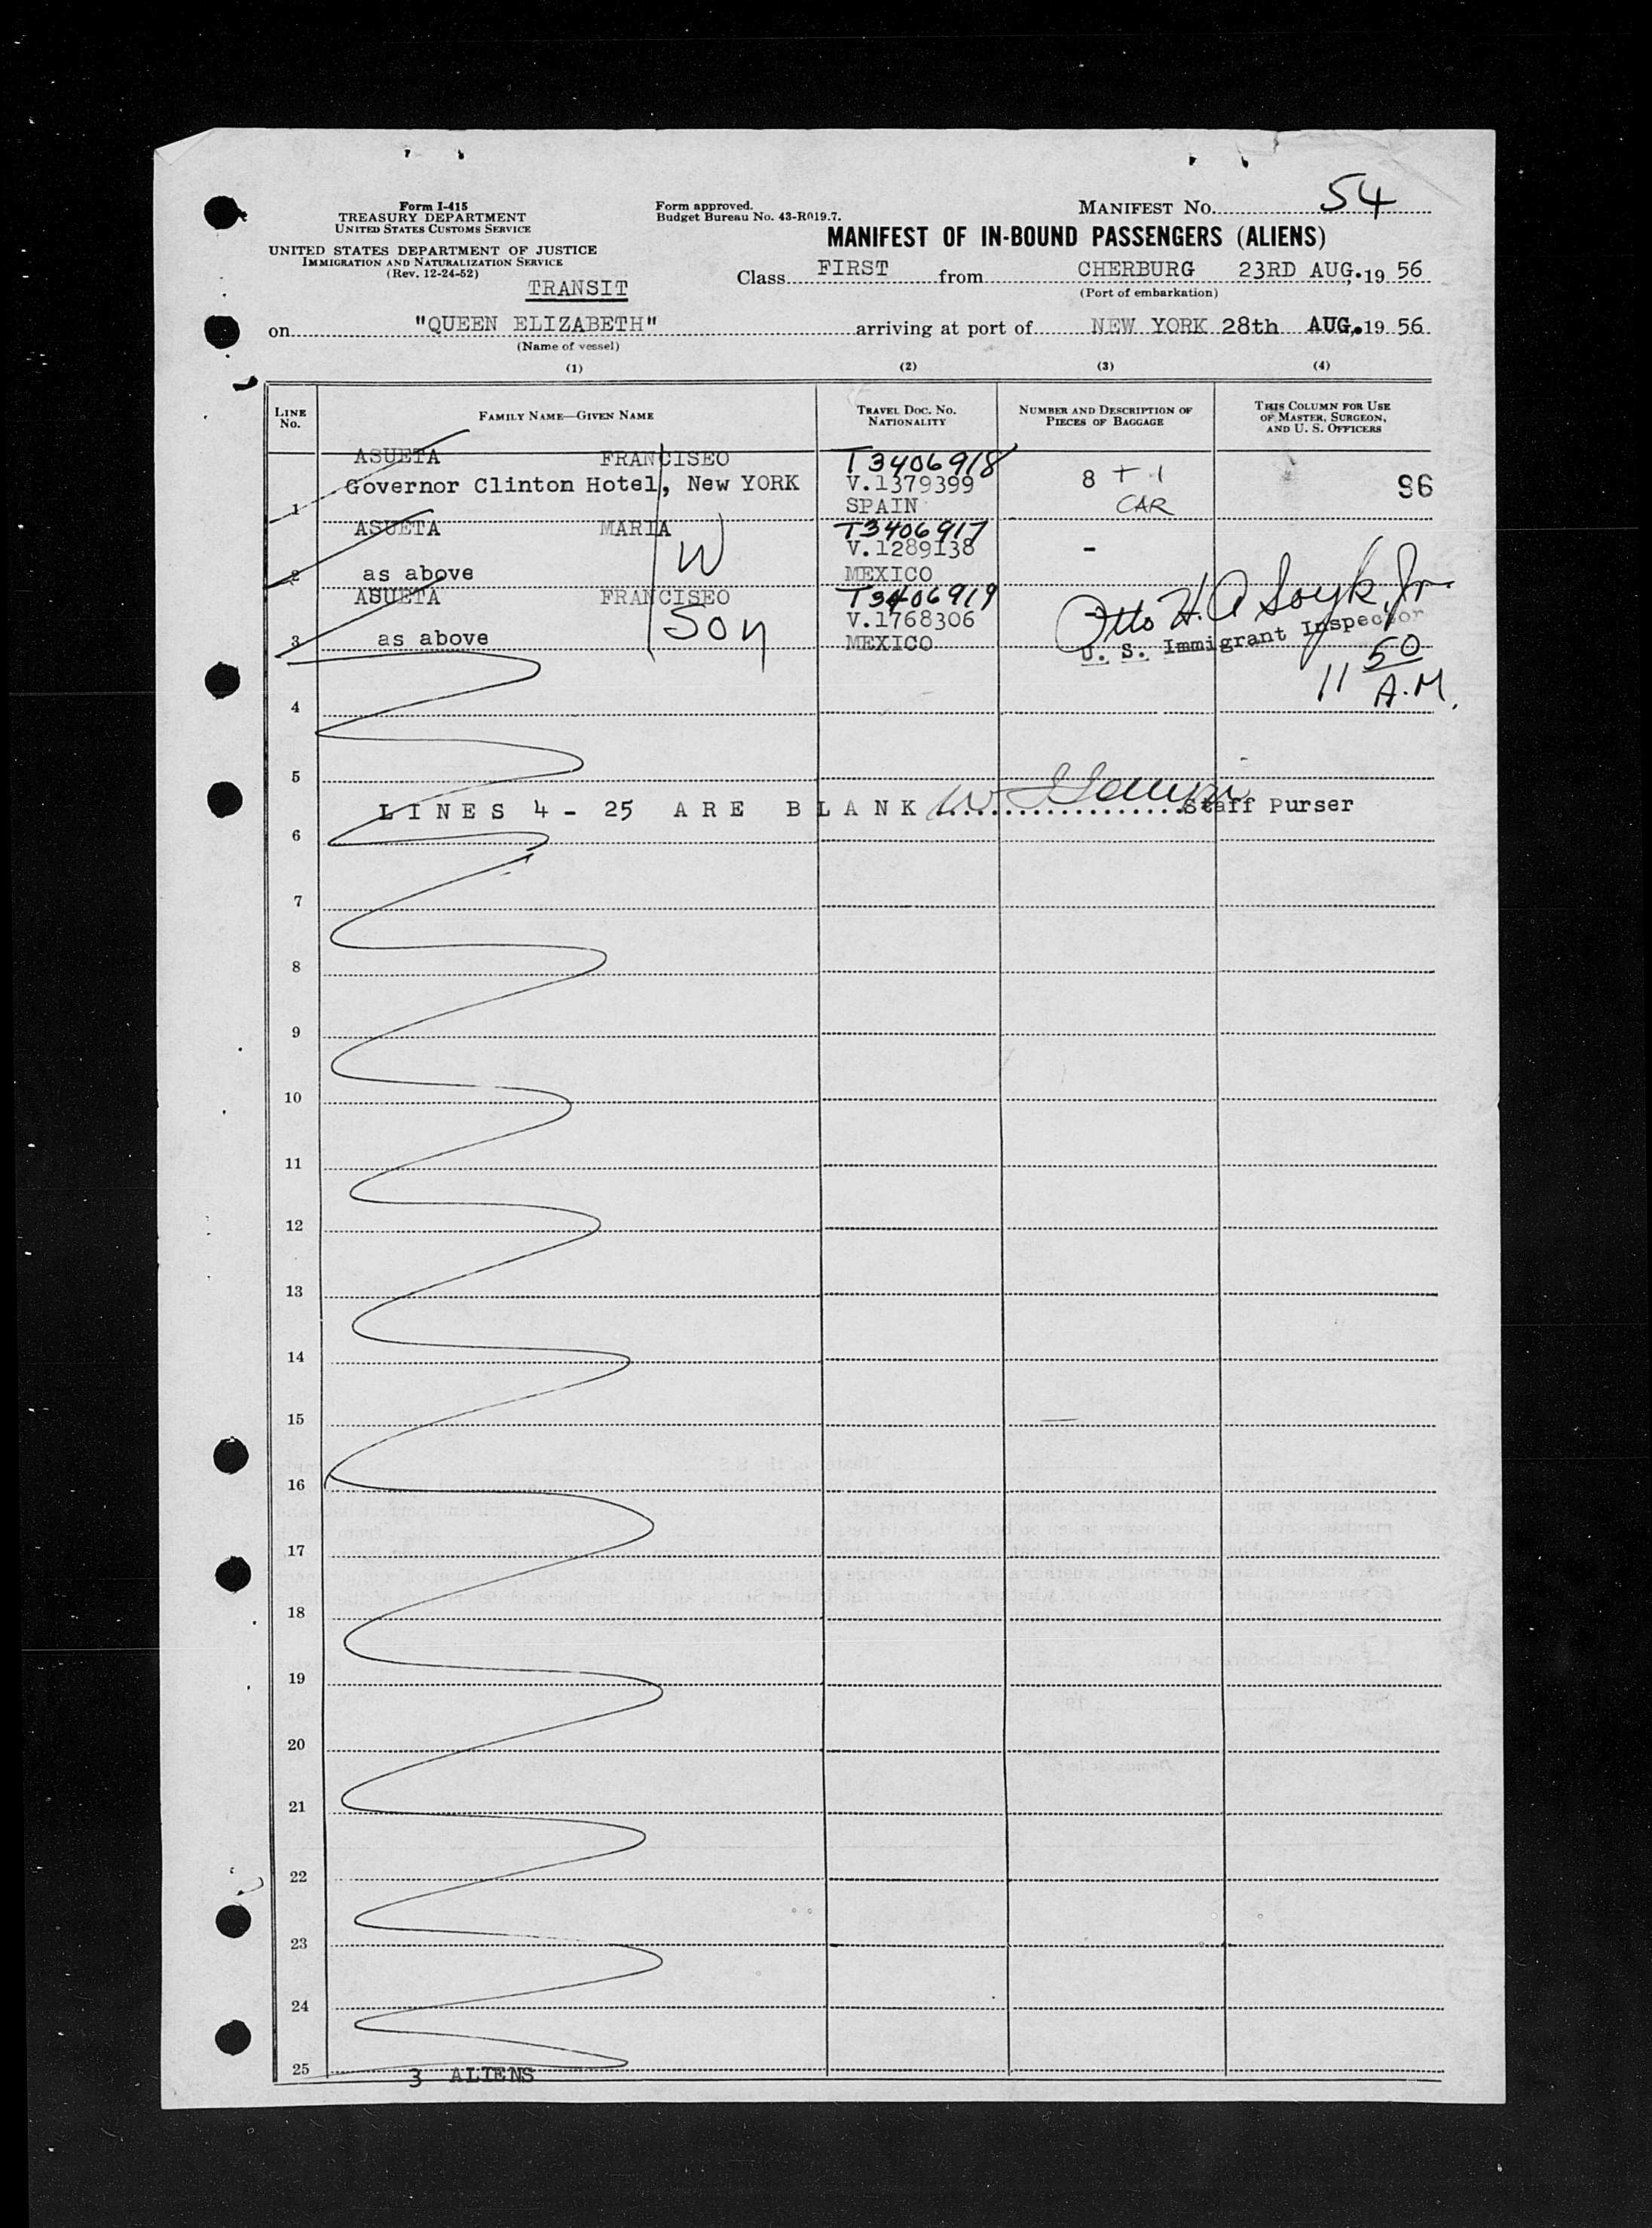 Form I-415
TREASURY DEPARTMENT
UNITED STATES CUSTOMS SERVICE
UNITED STATES DEPARTMENT OF JUSTICE
IMMIGRATION AND NATURALIZATION SERVICE
(Rev. 12-24-52)
TRANSIT
Form approved.
Budget Bureau No. 43-R019.7.
MANIFEST NO. 54
MANIFEST OF IN-BOUND PASSENGERS (ALIENS)
Class FIRST from CHERBURG 23RD AUG., 19 56
(Port of embarkation)
on "QUEEN ELIZABETH" arriving at port of NEW YORK 28th AUG., 19 56
(Name of vessel)
(1) (2) (3) (4)
LINE NO. FAMILY NAME—GIVEN NAME TRAVEL DOC. NO. NATIONALITY NUMBER AND DESCRIPTION OF PIECES OF BAGGAGE THIS COLUMN FOR USE OF MASTER, SURGEON, AND U. S. OFFICERS
ASUETA FRANCISEO T3406918
Governor Clinton Hotel, New YORK V.1379399 8 + 1 96
1 SPAIN CAR
ASUETA MARIA T3406917
W V.1289138 -
2 as above MEXICO
ASUETA FRANCISEO T3406919
Son V.1768306 -
3 as above MEXICO
Otto H. A Soyk, Jr.
U. S. Immigrant Inspector
11 50 A.M.
4
5
LINES 4 - 25 ARE BLANK ................ Staff Purser
6
7
8
9
10
11
12
13
14
15
16
17
18
19
20
21
22
23
24
25
3 ALIENS